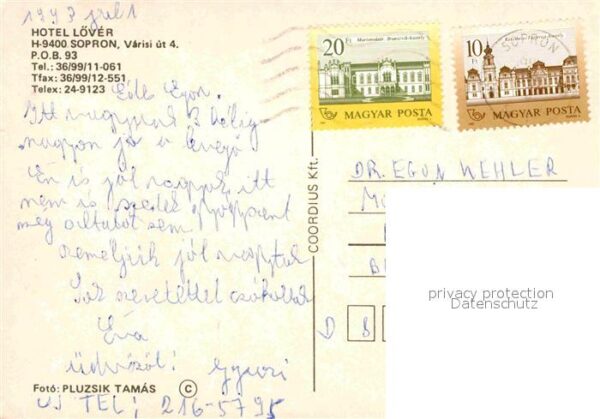 1993 júl 1
HOTEL LŐVÉR
H-9400 SOPRON, Várisi út 4.
P.O.B. 93
Tel.: 36/99/11-061
Tfax: 36/99/12-551
Telex: 24-9123
Egon.
Itt vagyunk 3 hétig
nagyon jó a levegő
Én is jól vagyok itt
nem is szedek
sem
reméljük jól vagytok
Sok szeretettel csókollak
Éva
üdvözöl! Gyuri
UJ TEL: 216-5795
Fotó: PLUZSIK TAMÁS ©
COORDIUS Kft.
20 Ft
MAGYAR POSTA
10 Ft
MAGYAR POSTA
SOPRON
DR. EGON WEHLER
D
privacy protection
Datenschutz